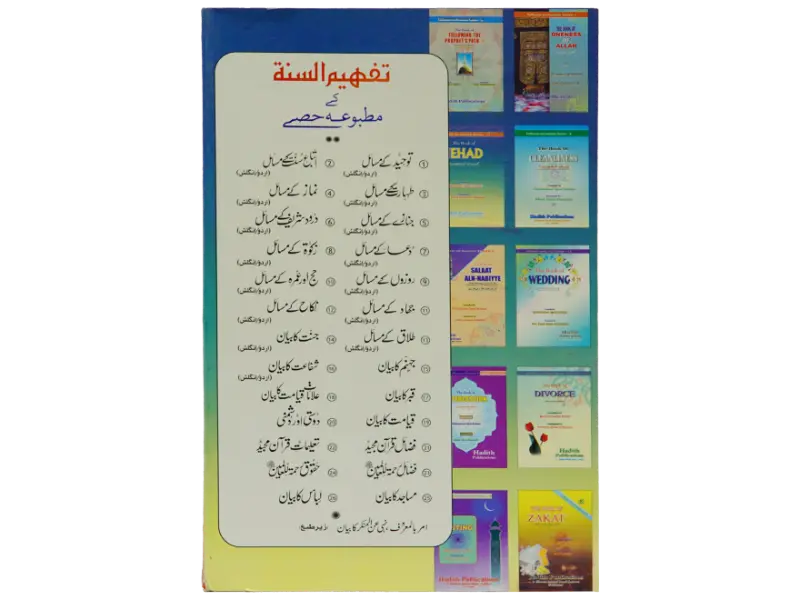 تفہیم السنۃ
کے
مطبوعہ حصے
① توحید کے مسائل (اردو/انگلش) ② اتباع سنت کے مسائل (اردو/انگلش)
③ طہارت کے مسائل (اردو/انگلش) ④ نماز کے مسائل (اردو/انگلش)
⑤ جنازے کے مسائل (اردو/انگلش) ⑥ درود شریف کے مسائل (اردو/انگلش)
⑦ دعا کے مسائل (اردو/انگلش) ⑧ زکوٰۃ کے مسائل (اردو/انگلش)
⑨ روزوں کے مسائل (اردو/انگلش) ⑩ حج اور عمرہ کے مسائل (اردو/انگلش)
⑪ جہاد کے مسائل (اردو/انگلش) ⑫ نکاح کے مسائل (اردو/انگلش)
⑬ طلاق کے مسائل (اردو/انگلش) ⑭ جنت کا بیان (اردو/انگلش)
⑮ جہنم کا بیان ⑯ شفاعت کا بیان (اردو/انگلش)
⑰ قبر کا بیان ⑱ علامات قیامت کا بیان
⑲ قیامت کا بیان ⑳ دوستی اور دشمنی
㉑ فضائل قرآن مجید ㉒ تعلیمات قرآن مجید
㉓ فضائل رحمۃ للعالمین ㉔ حقوق رحمۃ للعالمین
㉕ مساجد کا بیان ㉖ لباس کا بیان
امر بالمعروف، نہی عن المنکر کا بیان زیر طبع
The Book of
FOLLOWING THE
PROPHET'S PATH
Hadith Publications
ONENESS
of
ALLAH
The Book of
JEHAD
The Book of
CLEANLINESS
Hadith Publications
SALAAT
ALN-NABIYYE
The Book of
WEDDING
The Book of
DIVORCE
Hadith
Publications
ZAKAT
Hadith Publications